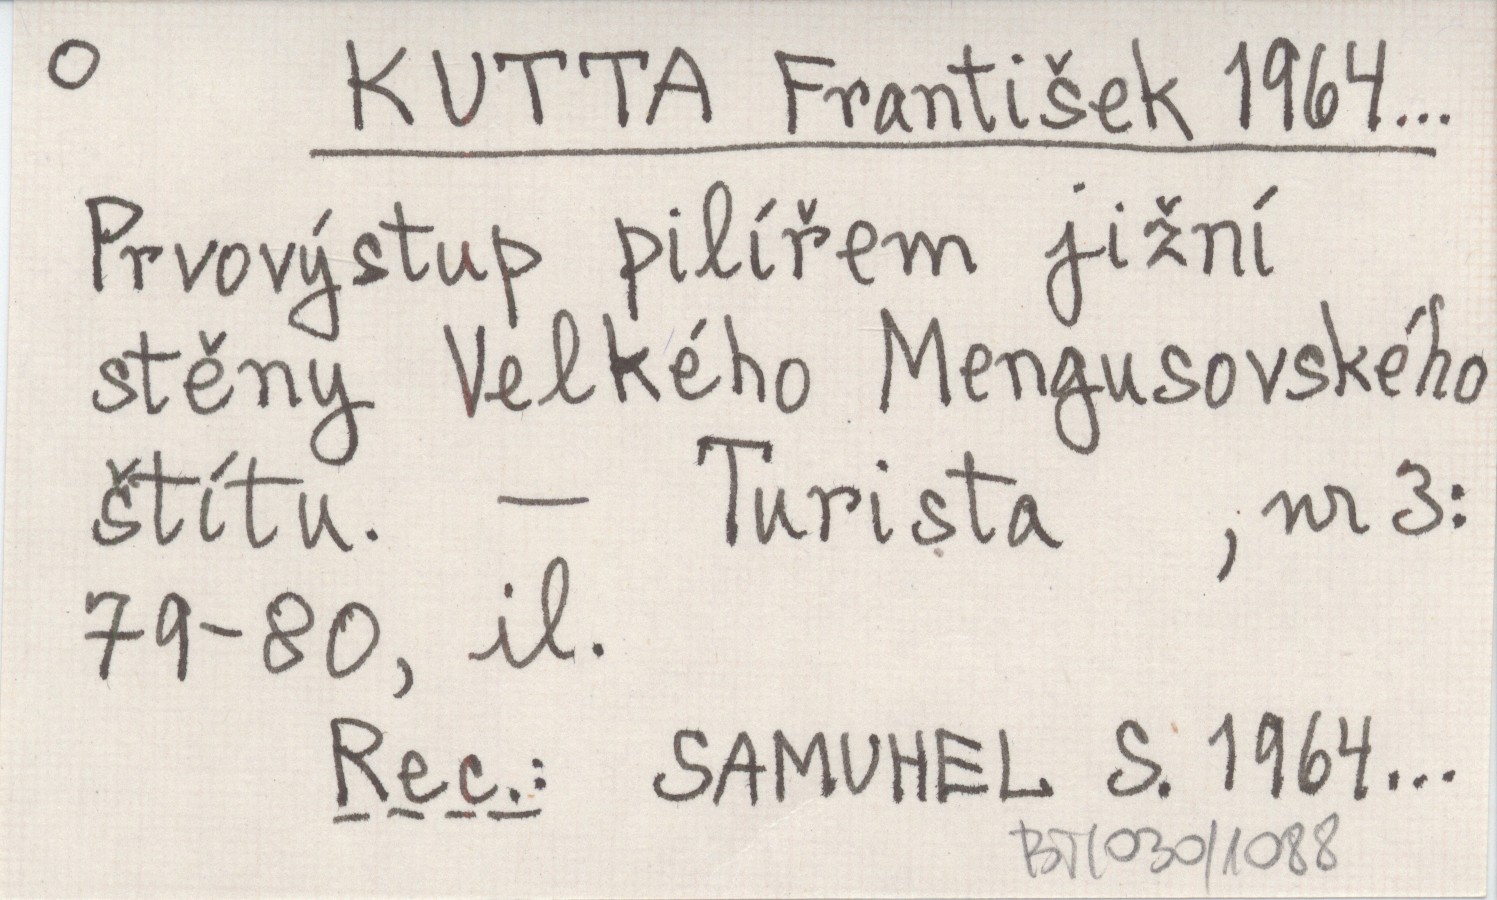 O KUTTA František 1964...
Prvovýstup pilířem jižní
stěny Velkého Mengusovského
štítu. — Turista , nr 3:
79-80, il.
Rec.: SAMUHEL S. 1964...
BJ(030)/1088